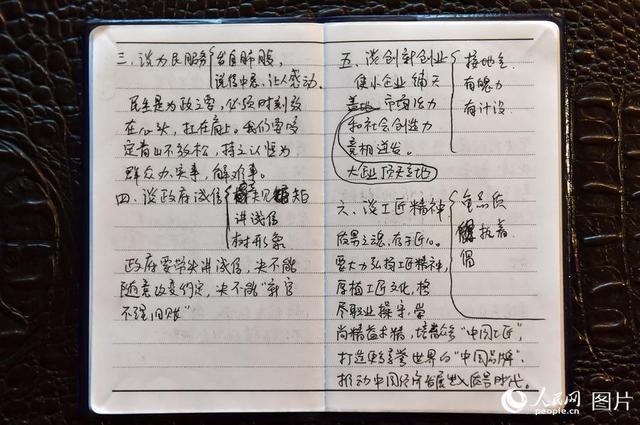 三、谈为民服务 发自肺腑,
说话中恳、让人感动.
民生是为政之要,必须时刻放
在心头,扛在肩上。我们要咬
定青山不放松,持之以恒为
群众办实事,解难事。
四、谈政府诚信
讲诚信
树形象
政府要带头讲诚信,决不能
随意改变约定,决不能“新官
不理旧账”
五、谈创新创业 接地气
使小企业铺天 有魄力
盖地、市场活力 有计设
和社会创造力
竞相迸发。
大企业顶天立地
六、谈工匠精神 重品质
质量之魂,存于匠心。 执着
要大力弘扬工匠精神, 倡
厚植工匠文化,恪
尽职业操守,崇
尚精益求精,培育众多“中国工匠”,
打造更多享誉世界的“中国品牌”,
推动中国经济发展进入质量时代。
人民网 图片
people.cn